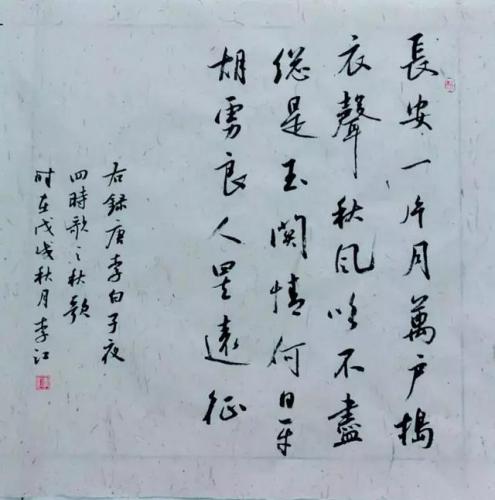 長安一片月萬戶搗
衣聲秋风吹不盡
総是玉関情何日平
胡虜良人罢遠征
右録唐李白子夜
四時歌之秋歌
时在戊戌秋月李江